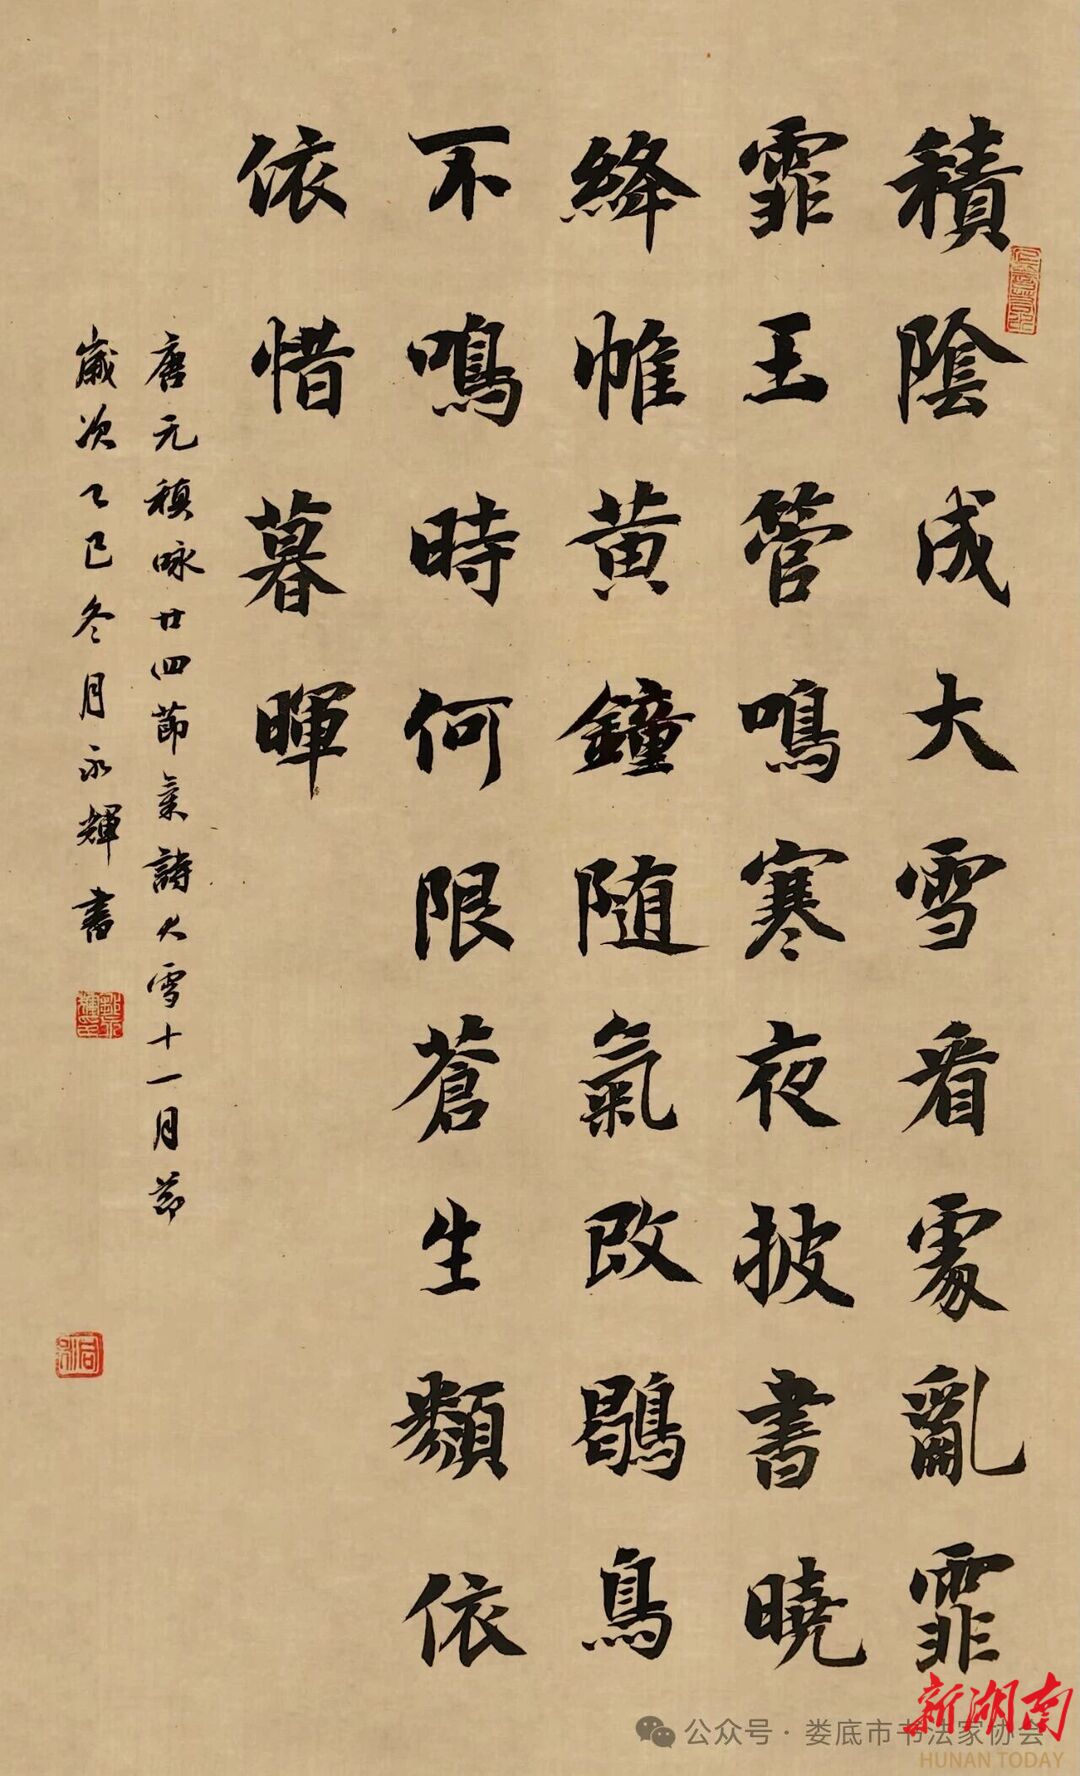 積陰成大雪看處亂霏
霏王管鳴寒夜披書曉
絳帷黄鐘随氣改鶡鳥
不鳴時何限蒼生類依
依惜暮暉
唐元稹咏廿四節氣詩大雪十一月節
歲次乙巳冬月永輝書
新湖南
HUNAN TODAY
公众号·娄底市书法家协会